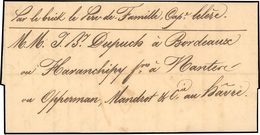 Par le brick le Père de Famille, Cape Lelère
M.M. J. Bte Dupuch à Bordeaux
ou Haranchipy fre à Nantes
ou Opperman Mandrot & Cie au Hâvre